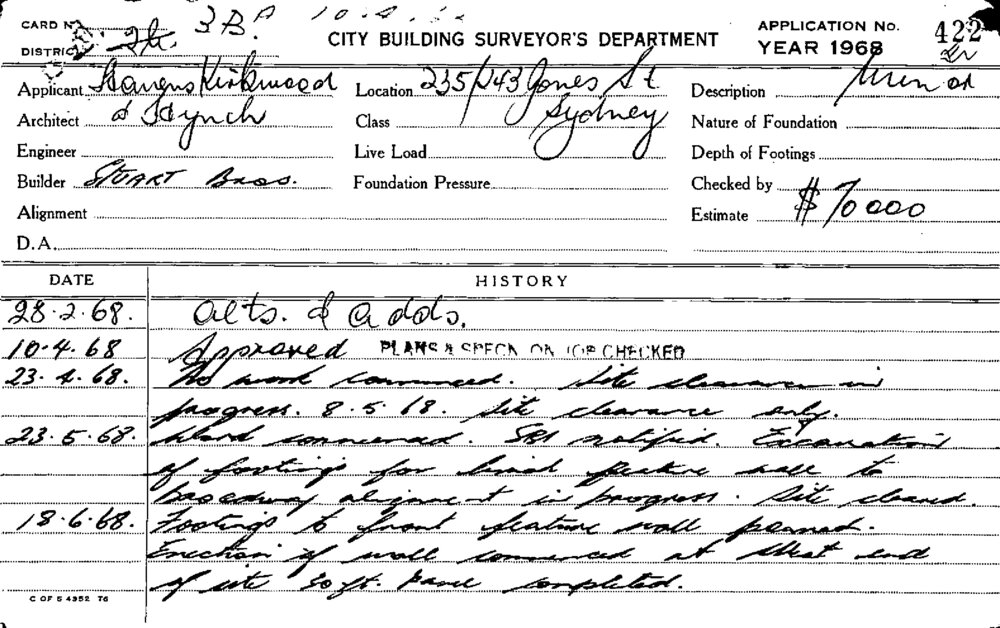 CARD No. 3B. 10.4.
DISTRICT
CITY BUILDING SURVEYOR'S DEPARTMENT
APPLICATION No. 422
YEAR 1968
Applicant Kirkwood
Location 235/243 Jones St
Description
Architect & Hynch
Class Sydney
Nature of Foundation
Engineer
Live Load
Depth of Footings
Builder STUART BROS.
Foundation Pressure
Checked by
Alignment
Estimate $70000
D.A.
DATE HISTORY
28.2.68. Alts. & Adds.
10.4.68 Approved PLANS & SPECN ON JOB CHECKED
23.4.68. No work commenced. Site clearance in
progress. 8.5.68. Site clearance only.
23.5.68. Work commenced. notified. Excavation
of footings for feature wall to
Broadway alignment in progress. Site cleared.
18.6.68. Footings to front feature wall poured.
Erection of wall commenced at West end
of site ft. completed.
C OF S 4352 76